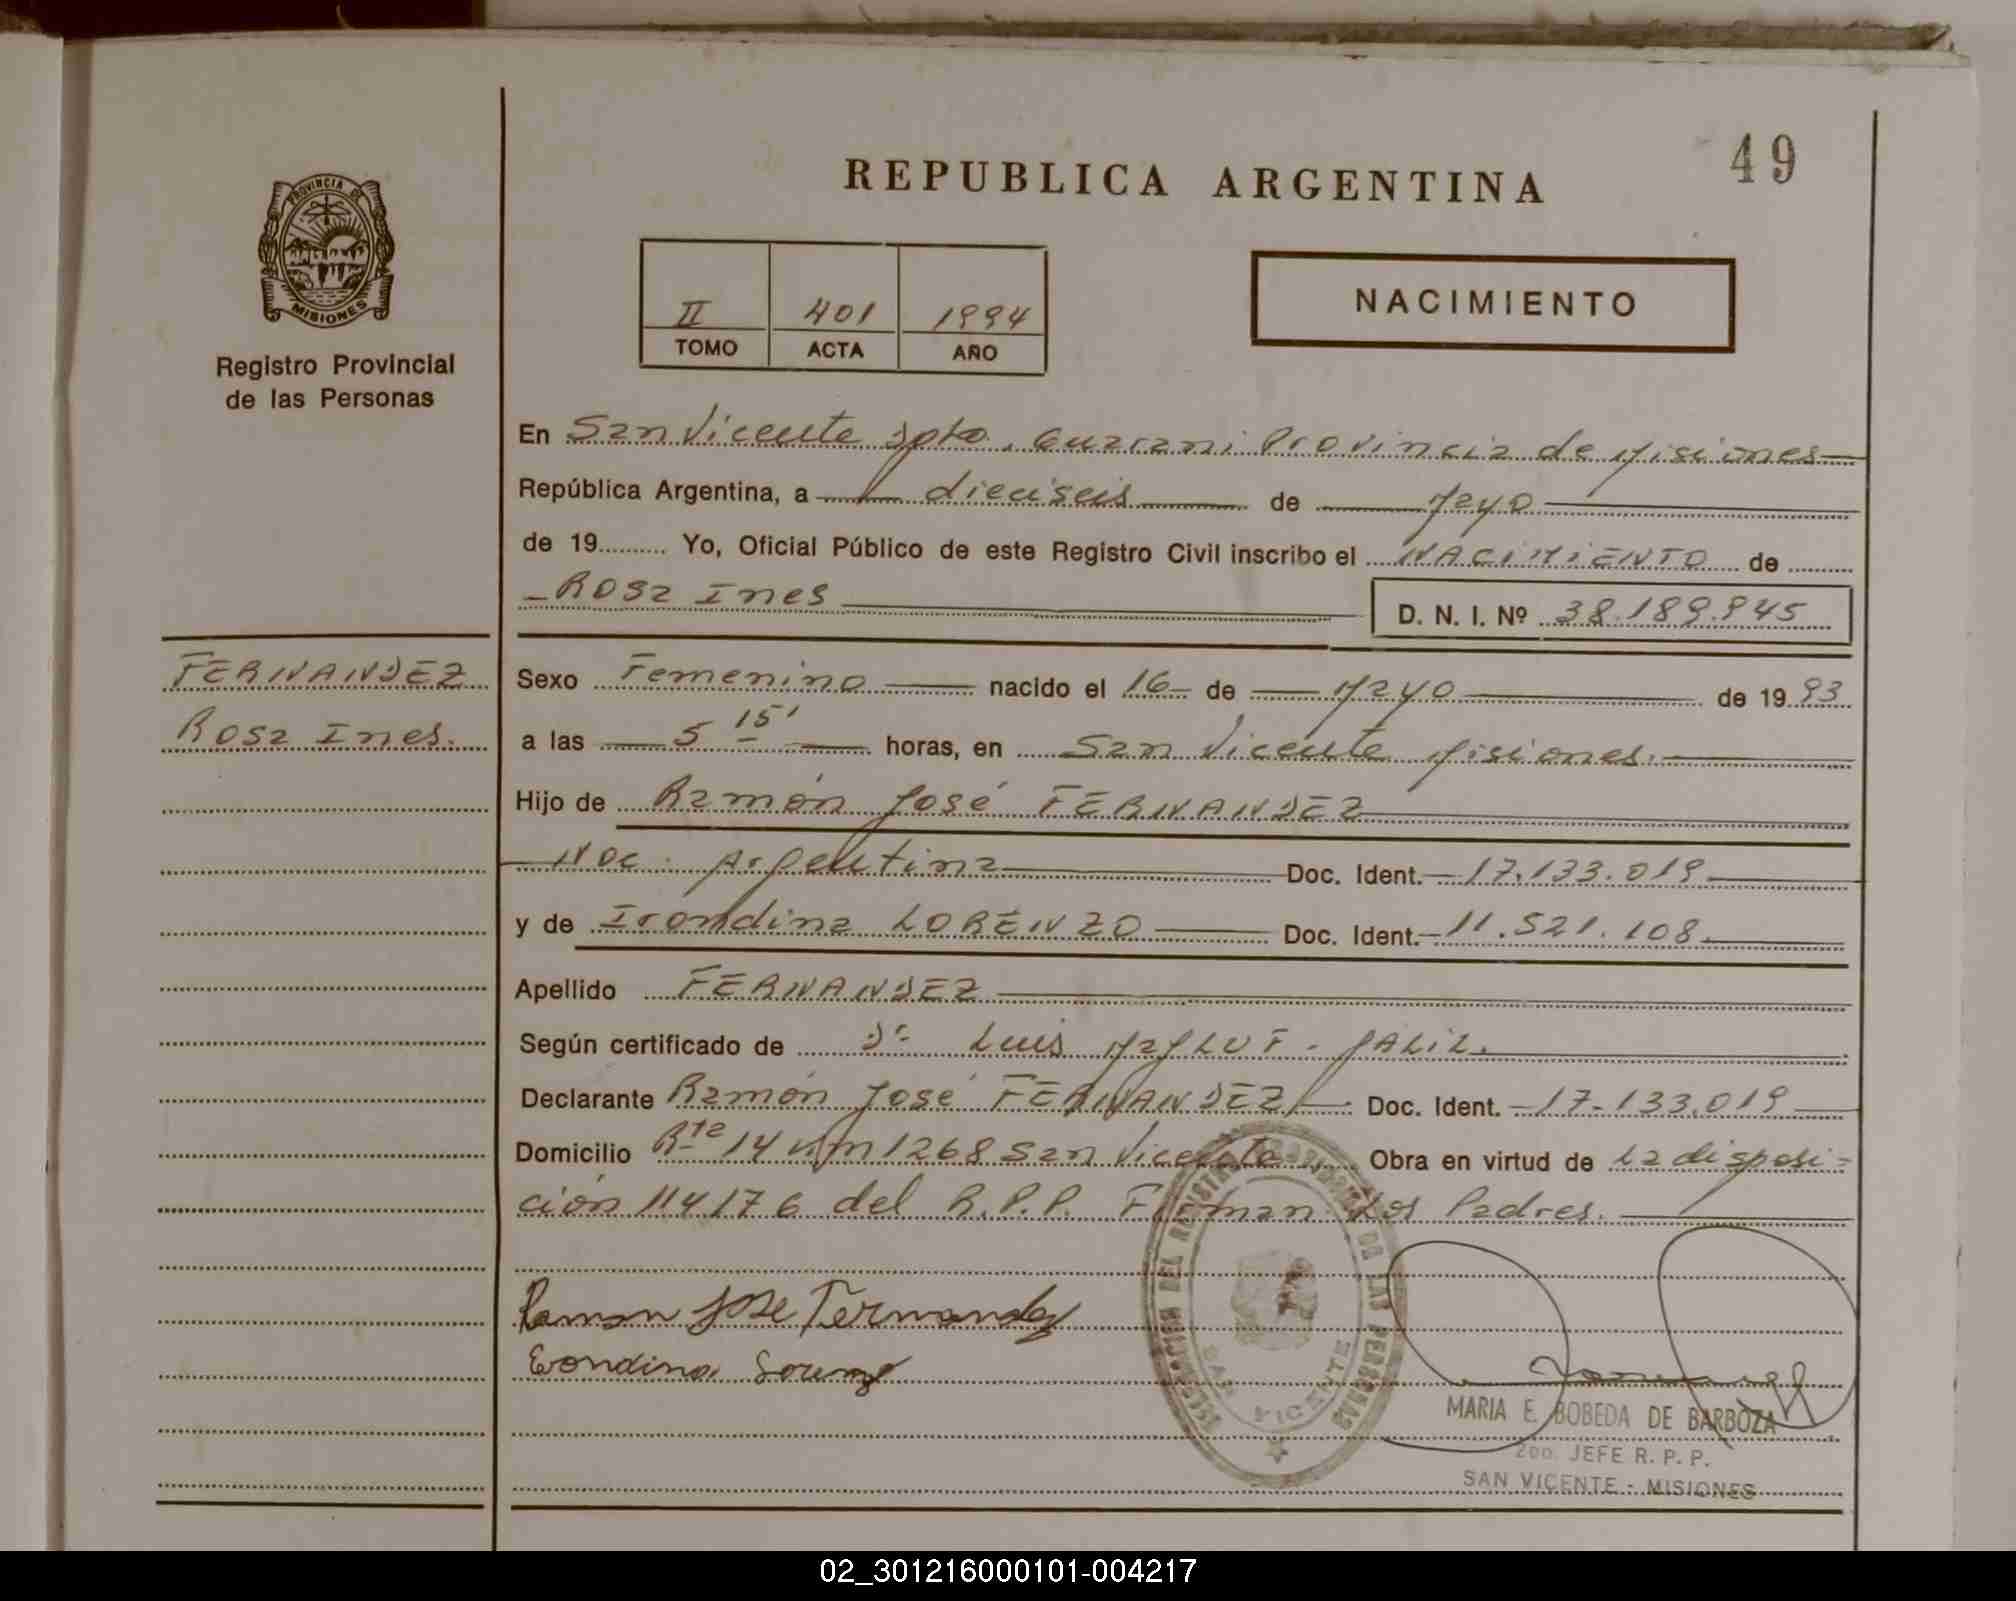 49
REPUBLICA ARGENTINA
PROVINCIA DE
MISIONES
Registro Provincial
de las Personas
II 401 1994
TOMO ACTA AÑO
NACIMIENTO
En San Vicente Dpto. Guarani Provincia de Misiones
República Argentina, a dieciseis de Mayo
de 19 Yo, Oficial Público de este Registro Civil inscribo el NACIMIENTO de
Rosa Ines D. N. I. Nº 38.189.945
FERNANDEZ
Rosa Ines.
Sexo Femenino nacido el 16 de Mayo de 19 93
a las 5 15' horas, en San Vicente Misiones.
Hijo de Ramón José FERNANDEZ
Nac. Argentina Doc. Ident. 17.133.019
y de Irondina LORENZO Doc. Ident. 11.521.108
Apellido FERNANDEZ
Según certificado de Dr Luis JALIL.
Declarante Ramón José FERNANDEZ Doc. Ident. 17.133.019
Domicilio Rta 14 Km 1268 San Vicente Obra en virtud de la disposi-
ción 114176 del R.P.P. Firman Los Padres.
Ramon Jose Fernandez
MARIA E. BOBEDA DE BARBOZA
2do. JEFE R. P. P.
SAN VICENTE - MISIONES
DELEGACION DEL REGISTRO PROVINCIAL DE LAS PERSONAS
SAN VICENTE
02_301216000101-004217